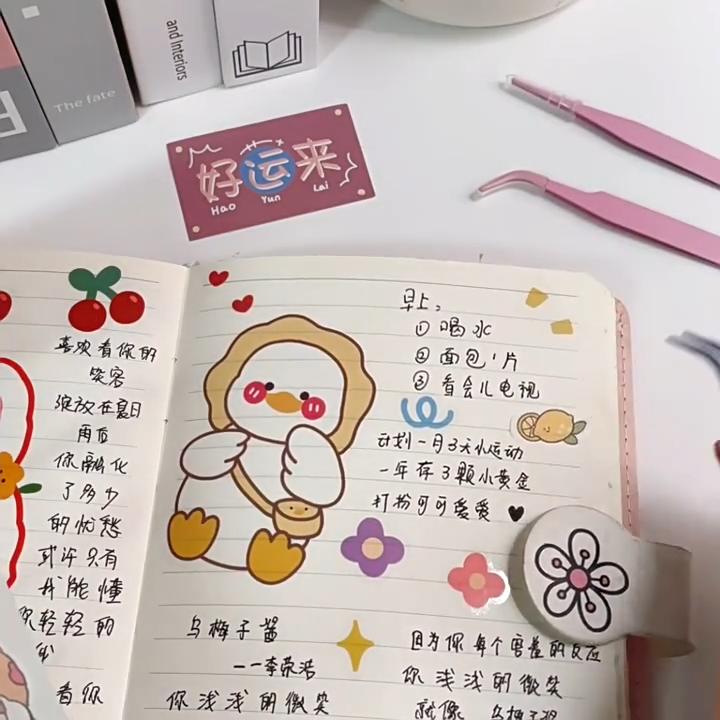 and Interiors
The fate
好运来
Hao Yun Lai
喜欢看你的
笑容
绽放在夏日
雨后
你融化
了多少
的忧愁
或许只有
我能懂
轻轻的
看你
早上,
① 喝水
② 面包1片
③ 看会儿电视
计划一月3天小运动
一年存3颗小黄金
打扮可可爱爱
乌梅子酱
——李荣浩
你浅浅的微笑
因为你每个害羞的反应
你浅浅的微笑
就像